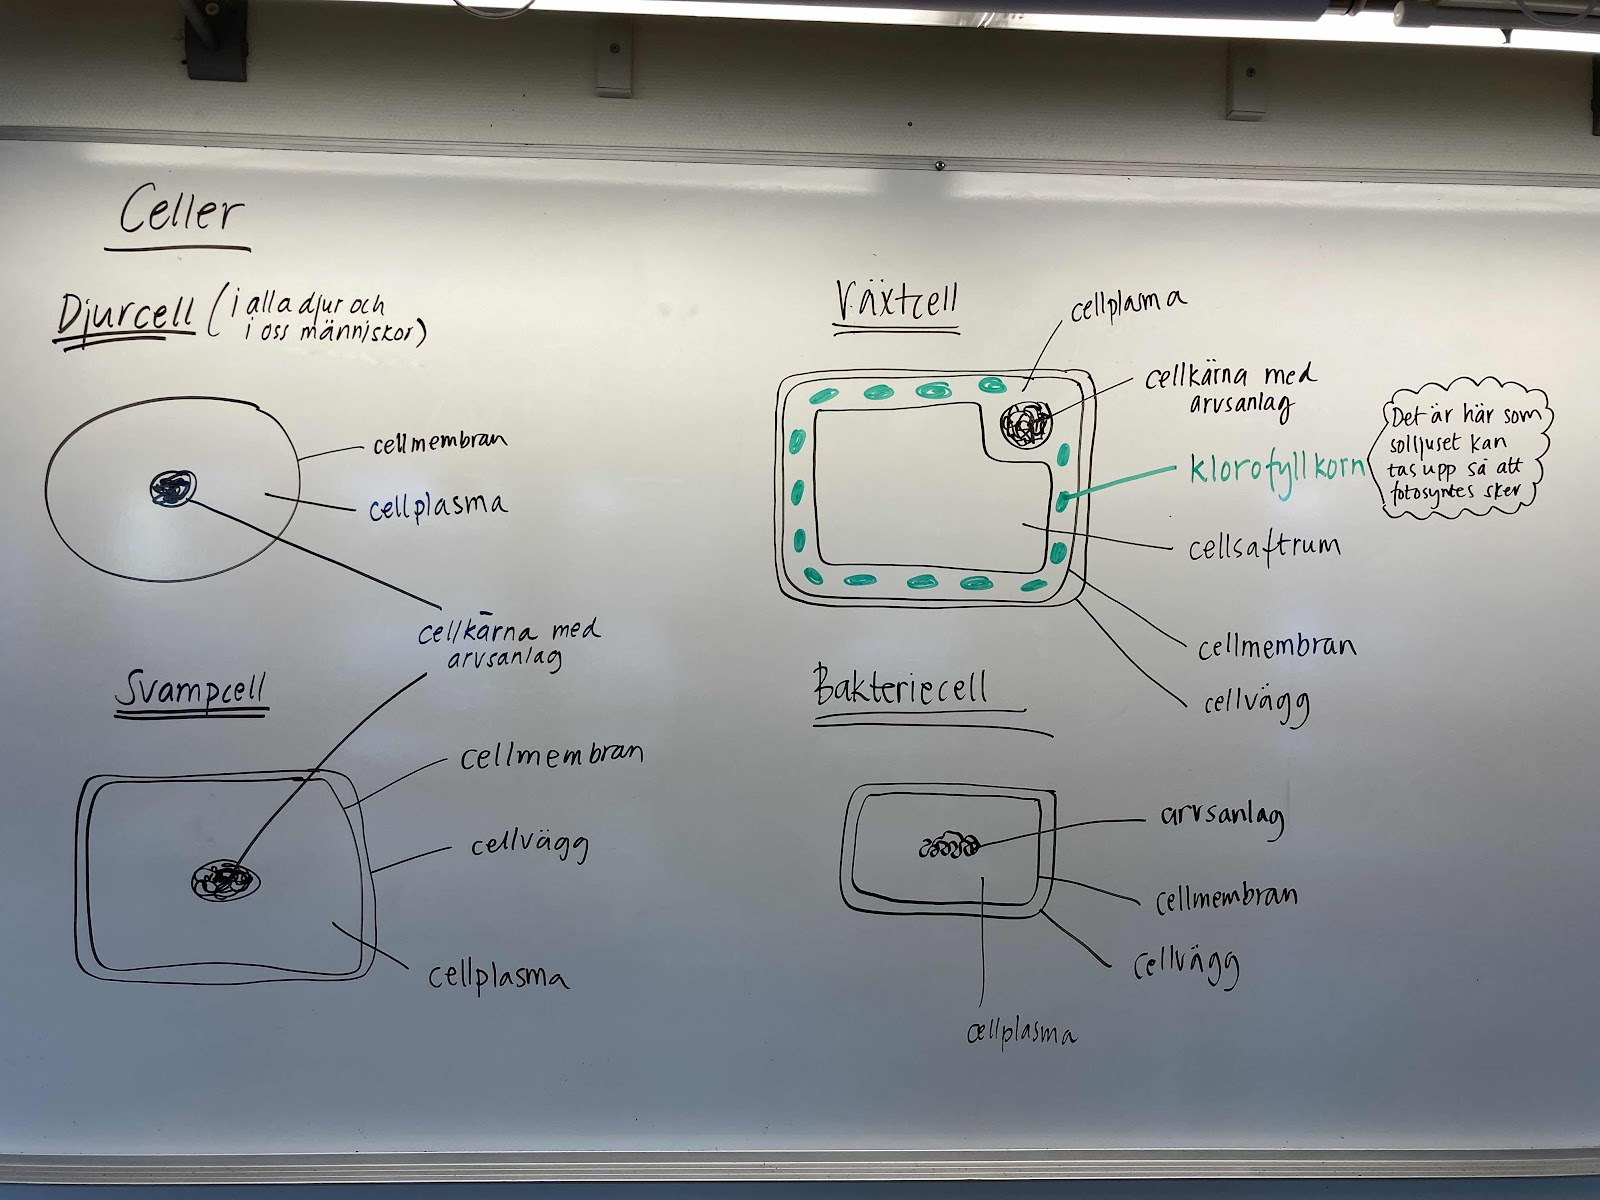 Celler
Djurcell (i alla djur och
i oss människor)
cellmembran
cellplasma
cellkärna med
arvsanlag
Svampcell
cellmembran
cellvägg
cellplasma
Växtcell
cellplasma
cellkärna med
arvsanlag
klorofyllkorn
Det är här som
solljuset kan
tas upp så att
fotosyntes sker
cellsaftrum
cellmembran
cellvägg
Bakteriecell
arvsanlag
cellmembran
cellvägg
cellplasma